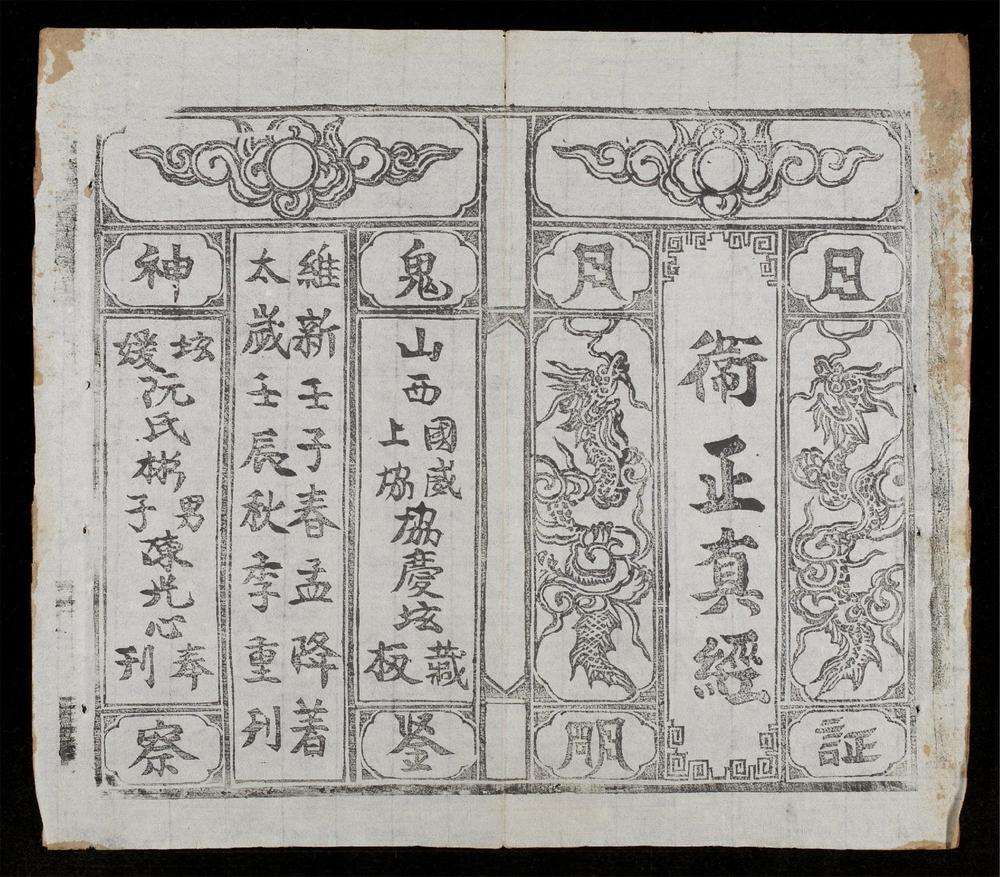 日
証
衛正真經
月
明
鬼
山西
國威
上協
協慶坛
藏
板
鉴
維新壬子春孟降着
太歲壬辰秋季重刊
神
坛
媛
阮氏彬
男
子
陳光心
奉
刊
察